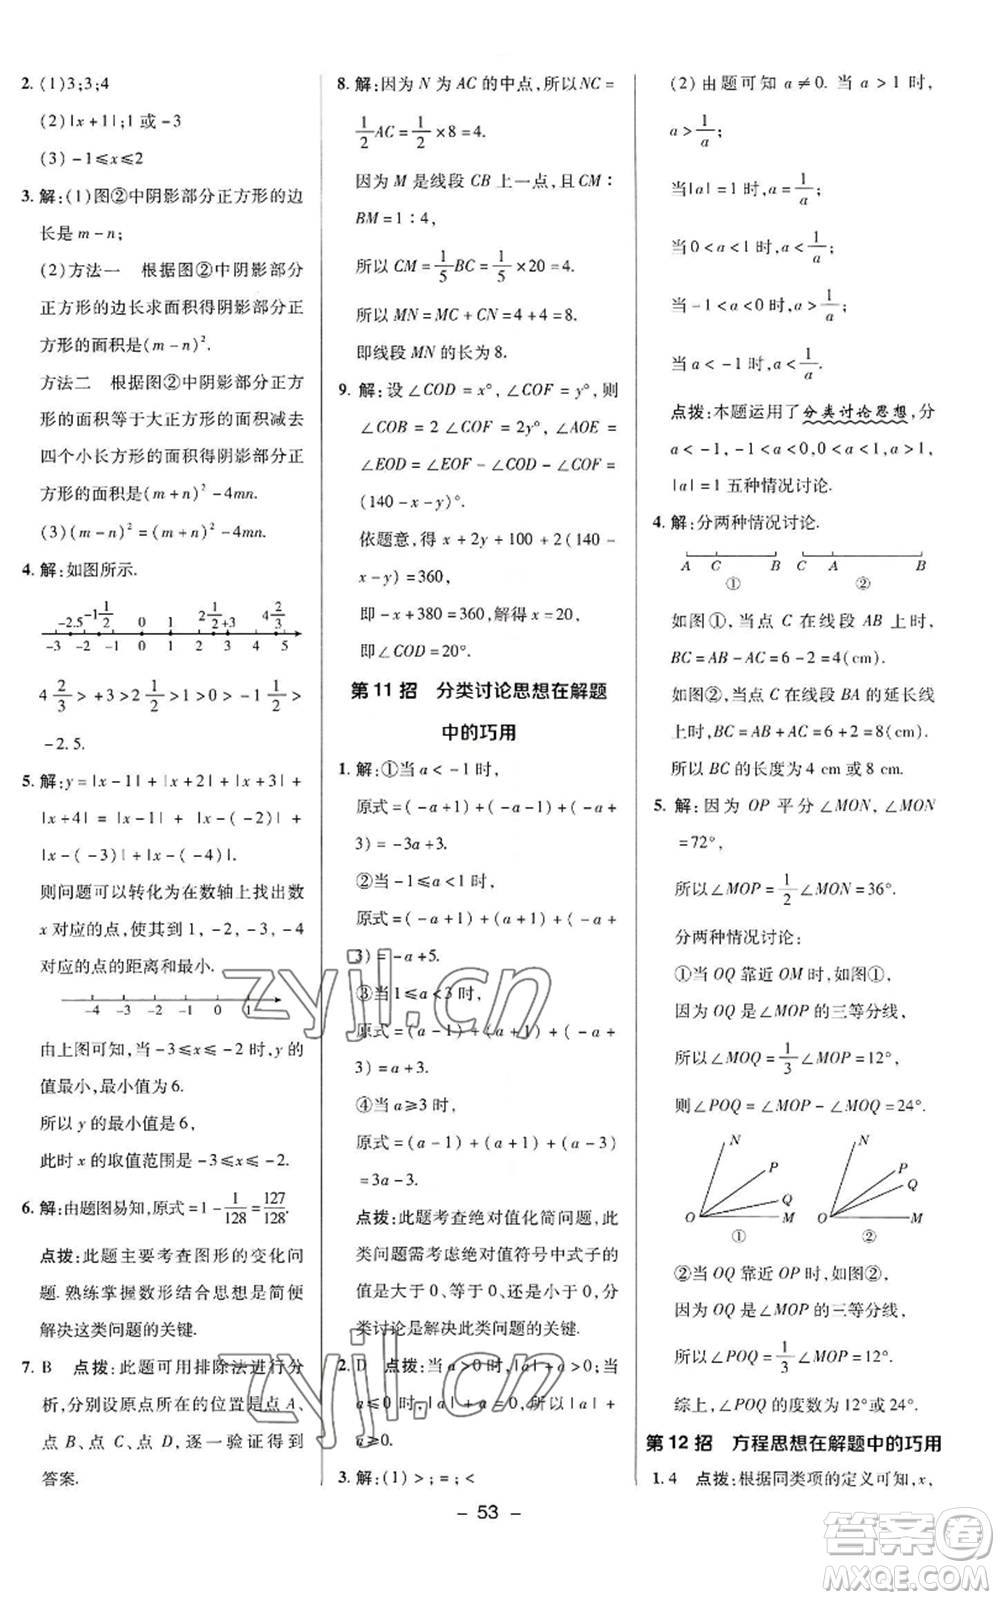 2. (1)3;3;4
(2)|x+1|;1 或 -3
(3) -1≤x≤2
3. 解:(1)图②中阴影部分正方形的边
长是 m-n;
(2)方法一　根据图②中阴影部分
正方形的边长求面积得阴影部分正
方形的面积是(m-n)².
方法二　根据图②中阴影部分正方
形的面积等于大正方形的面积减去
四个小长方形的面积得阴影部分正
方形的面积是(m+n)²-4mn.
(3)(m-n)²=(m+n)²-4mn.
4. 解:如图所示.
-2.5 -1 1/2 0 1 2 1/2 +3 4 2/3
-3 -2 -1 0 1 2 3 4 5
4 2/3 > +3 > 2 1/2 > 1 > 0 > -1 1/2 >
-2.5.
5. 解:y=|x-1|+|x+2|+|x+3|+
|x+4|=|x-1|+|x-(-2)|+
|x-(-3)|+|x-(-4)|.
则问题可以转化为在数轴上找出数
x 对应的点,使其到 1,-2,-3,-4
对应的点的距离和最小.
-4 -3 -2 -1 0 1
由上图可知,当 -3≤x≤-2 时,y 的
值最小,最小值为 6.
所以 y 的最小值是 6,
此时 x 的取值范围是 -3≤x≤-2.
6. 解:由题图易知,原式=1-1/128=127/128.
点拨:此题主要考查图形的变化问
题.熟练掌握数形结合思想是简便
解决这类问题的关键.
7. B　点拨:此题可用排除法进行分
析,分别设原点所在的位置是点 A、
点 B、点 C、点 D,逐一验证得到
答案.
8. 解:因为 N 为 AC 的中点,所以 NC=
1/2 AC=1/2×8=4.
因为 M 是线段 CB 上一点,且 CM:
BM=1:4,
所以 CM=1/5 BC=1/5×20=4.
所以 MN=MC+CN=4+4=8.
即线段 MN 的长为 8.
9. 解:设∠COD=x°,∠COF=y°,则
∠COB=2∠COF=2y°,∠AOE=
∠EOD=∠EOF-∠COD-∠COF=
(140-x-y)°.
依题意,得 x+2y+100+2(140-
x-y)=360,
即 -x+380=360,解得 x=20,
即∠COD=20°.
第 11 招　分类讨论思想在解题
中的巧用
1. 解:①当 a<-1 时,
原式=(-a+1)+(-a-1)+(-a+
3)=-3a+3.
②当 -1≤a<1 时,
原式=(-a+1)+(a+1)+(-a+
3)=-a+5.
③当 1≤a<3 时,
原式=(a-1)+(a+1)+(-a+
3)=a+3.
④当 a≥3 时,
原式=(a-1)+(a+1)+(a-3)
=3a-3.
点拨:此题考查绝对值化简问题,此
类问题需考虑绝对值符号中式子的
值是大于 0、等于 0,还是小于 0,分
类讨论是解决此类问题的关键.
2. D　点拨:当 a>0 时,|a|+a>0;当
a≤0 时,|a|+a=0,所以|a|+
a≥0.
3. 解:(1)>;=;<
(2)由题可知 a≠0. 当 a>1 时,
a>1/a;
当|a|=1 时,a=1/a;
当 0<a<1 时,a<1/a;
当 -1<a<0 时,a>1/a;
当 a<-1 时,a<1/a.
点拨:本题运用了分类讨论思想,分
a<-1,-1<a<0,0<a<1,a>1,
|a|=1 五种情况讨论.
4. 解:分两种情况讨论.
A C B C A B
① ②
如图①,当点 C 在线段 AB 上时,
BC=AB-AC=6-2=4(cm);
如图②,当点 C 在线段 BA 的延长线
上时,BC=AB+AC=6+2=8(cm).
所以 BC 的长度为 4 cm 或 8 cm.
5. 解:因为 OP 平分∠MON,∠MON
=72°,
所以∠MOP=1/2∠MON=36°.
分两种情况讨论:
①当 OQ 靠近 OM 时,如图①,
因为 OQ 是∠MOP 的三等分线,
所以∠MOQ=1/3∠MOP=12°,
则∠POQ=∠MOP-∠MOQ=24°.
N P Q M O
①
N P Q M O
②
②当 OQ 靠近 OP 时,如图②,
因为 OQ 是∠MOP 的三等分线,
所以∠POQ=1/3∠MOP=12°.
综上,∠POQ 的度数为 12°或 24°.
第 12 招　方程思想在解题中的巧用
1. 4　点拨:根据同类项的定义可知,x,
- 53 -
zyjl.cn
zyjl.cn
答案圈
MXQE.COM